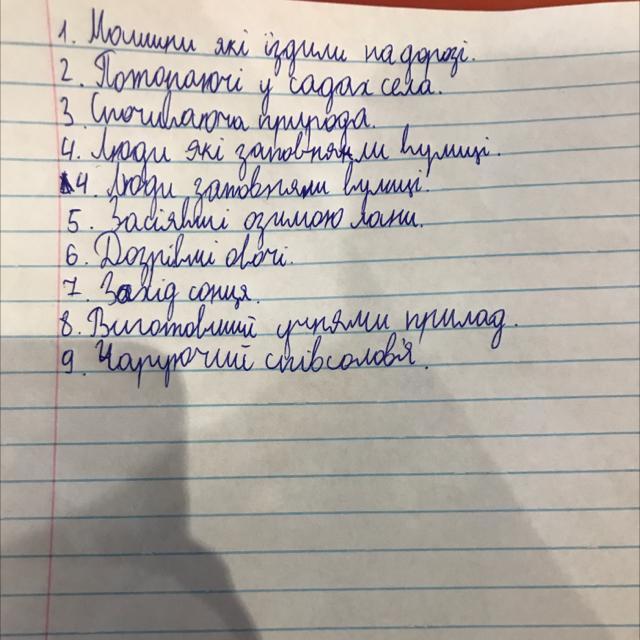 1. Машини які їздили на дорозі.
2. Потопаючі у садах села.
3. Спочиваюча природа.
4. Люди які заповняли вулиці.
4. Люди заповняли вулиці.
5. Засіявші озимою лани.
6. Дозрівші овочі.
7. Захід сонця.
8. Виготовший учнями прилад.
9. Чаруючий спів солов'я.